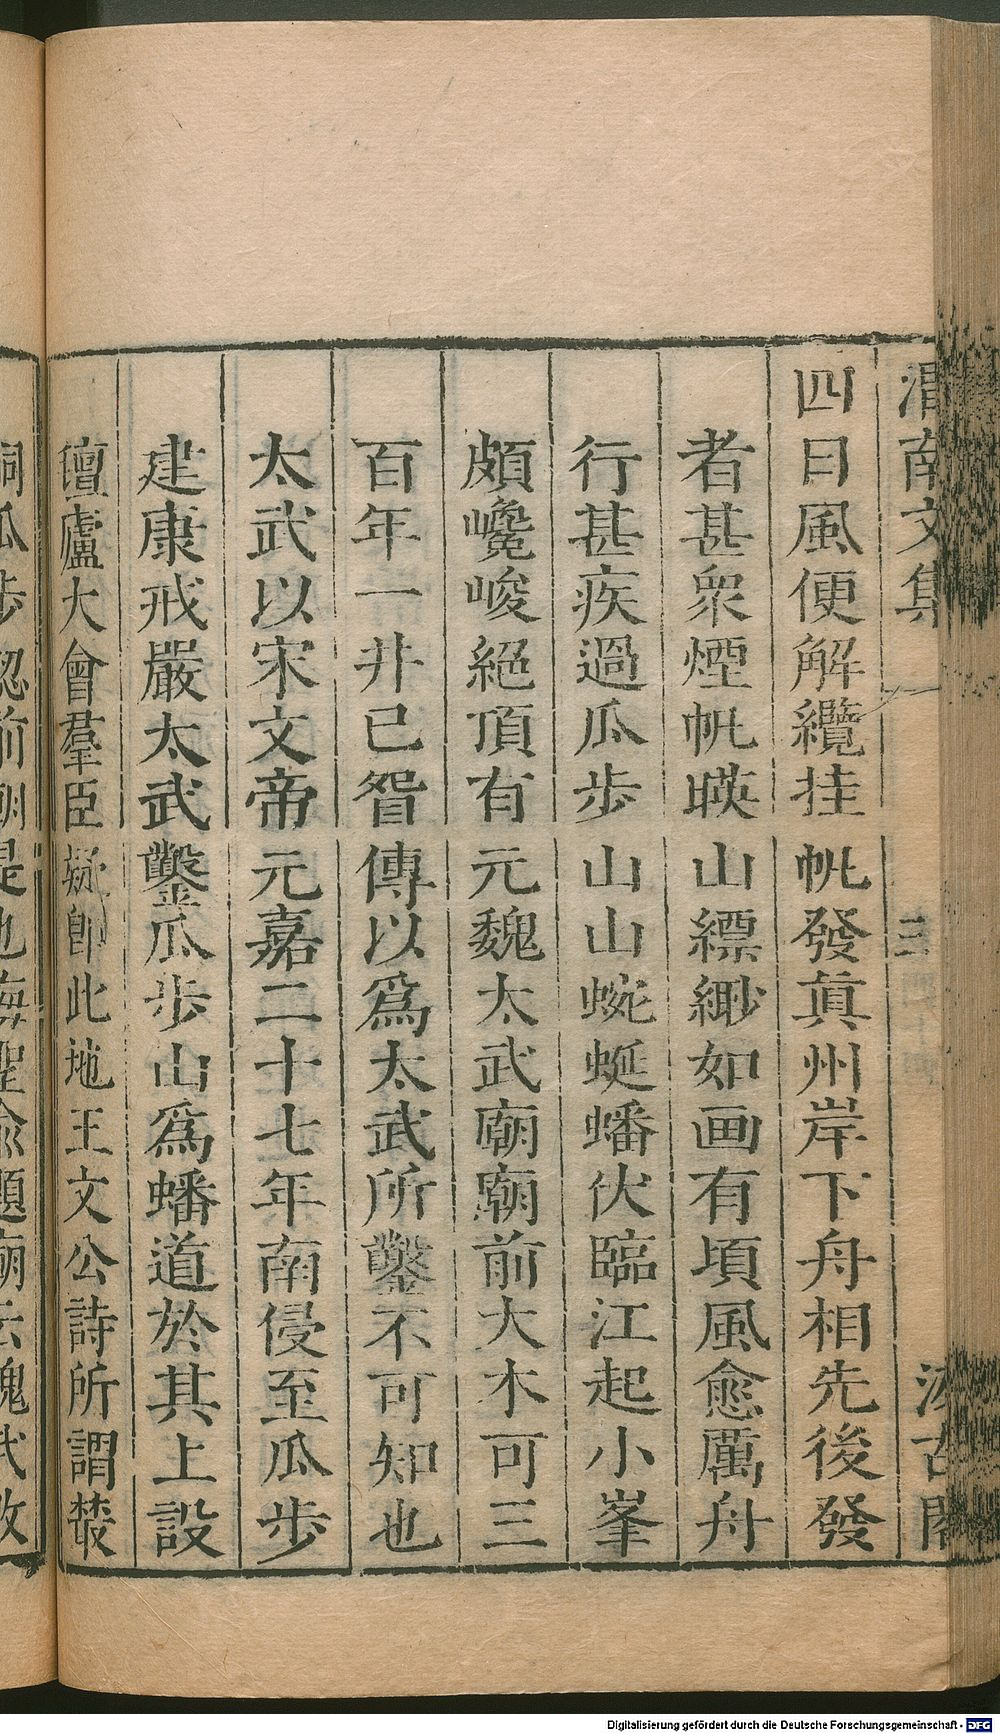 渭南文集 三 汲古閣
四日風便解纜挂帆發眞州岸下舟相先後發
者甚衆煙帆暎山縹緲如画有頃風愈厲舟
行甚疾過瓜步山山蜿蜒蟠伏臨江起小峯
頗巉峻絕頂有元魏太武廟廟前大木可三
百年一井已眢傳以爲太武所鑿不可知也
太武以宋文帝元嘉二十七年南侵至瓜步
建康戒嚴太武鑿瓜步山爲蟠道於其上設
氊廬大會羣臣疑卽此地王文公詩所謂叢
祠瓜步認前朝是也梅聖俞題廟云魏武敗
Digitalisierung gefördert durch die Deutsche Forschungsgemeinschaft - DFG